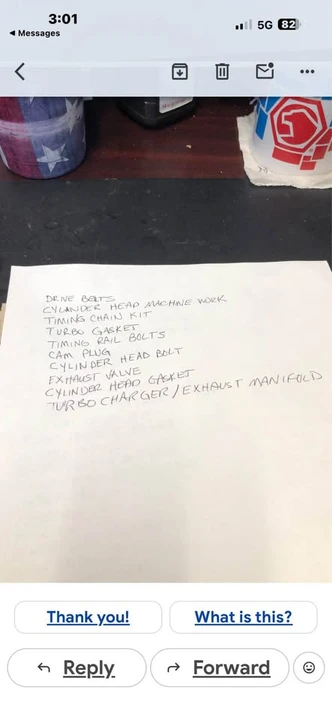 3:01
5G 82
Messages
DRIVE BELTS
CYLANDER HEAD MACHINE WORK
TIMING CHAIN KIT
TURBO GASKET
TIMING RAIL BOLTS
CAM PLUG
CYLINDER HEAD BOLT
EXHAUST VALVE
CYLINDER HEAD GASKET
TURBO CHARGER/EXHAUST MANIFOLD
Thank you!
What is this?
Reply
Forward